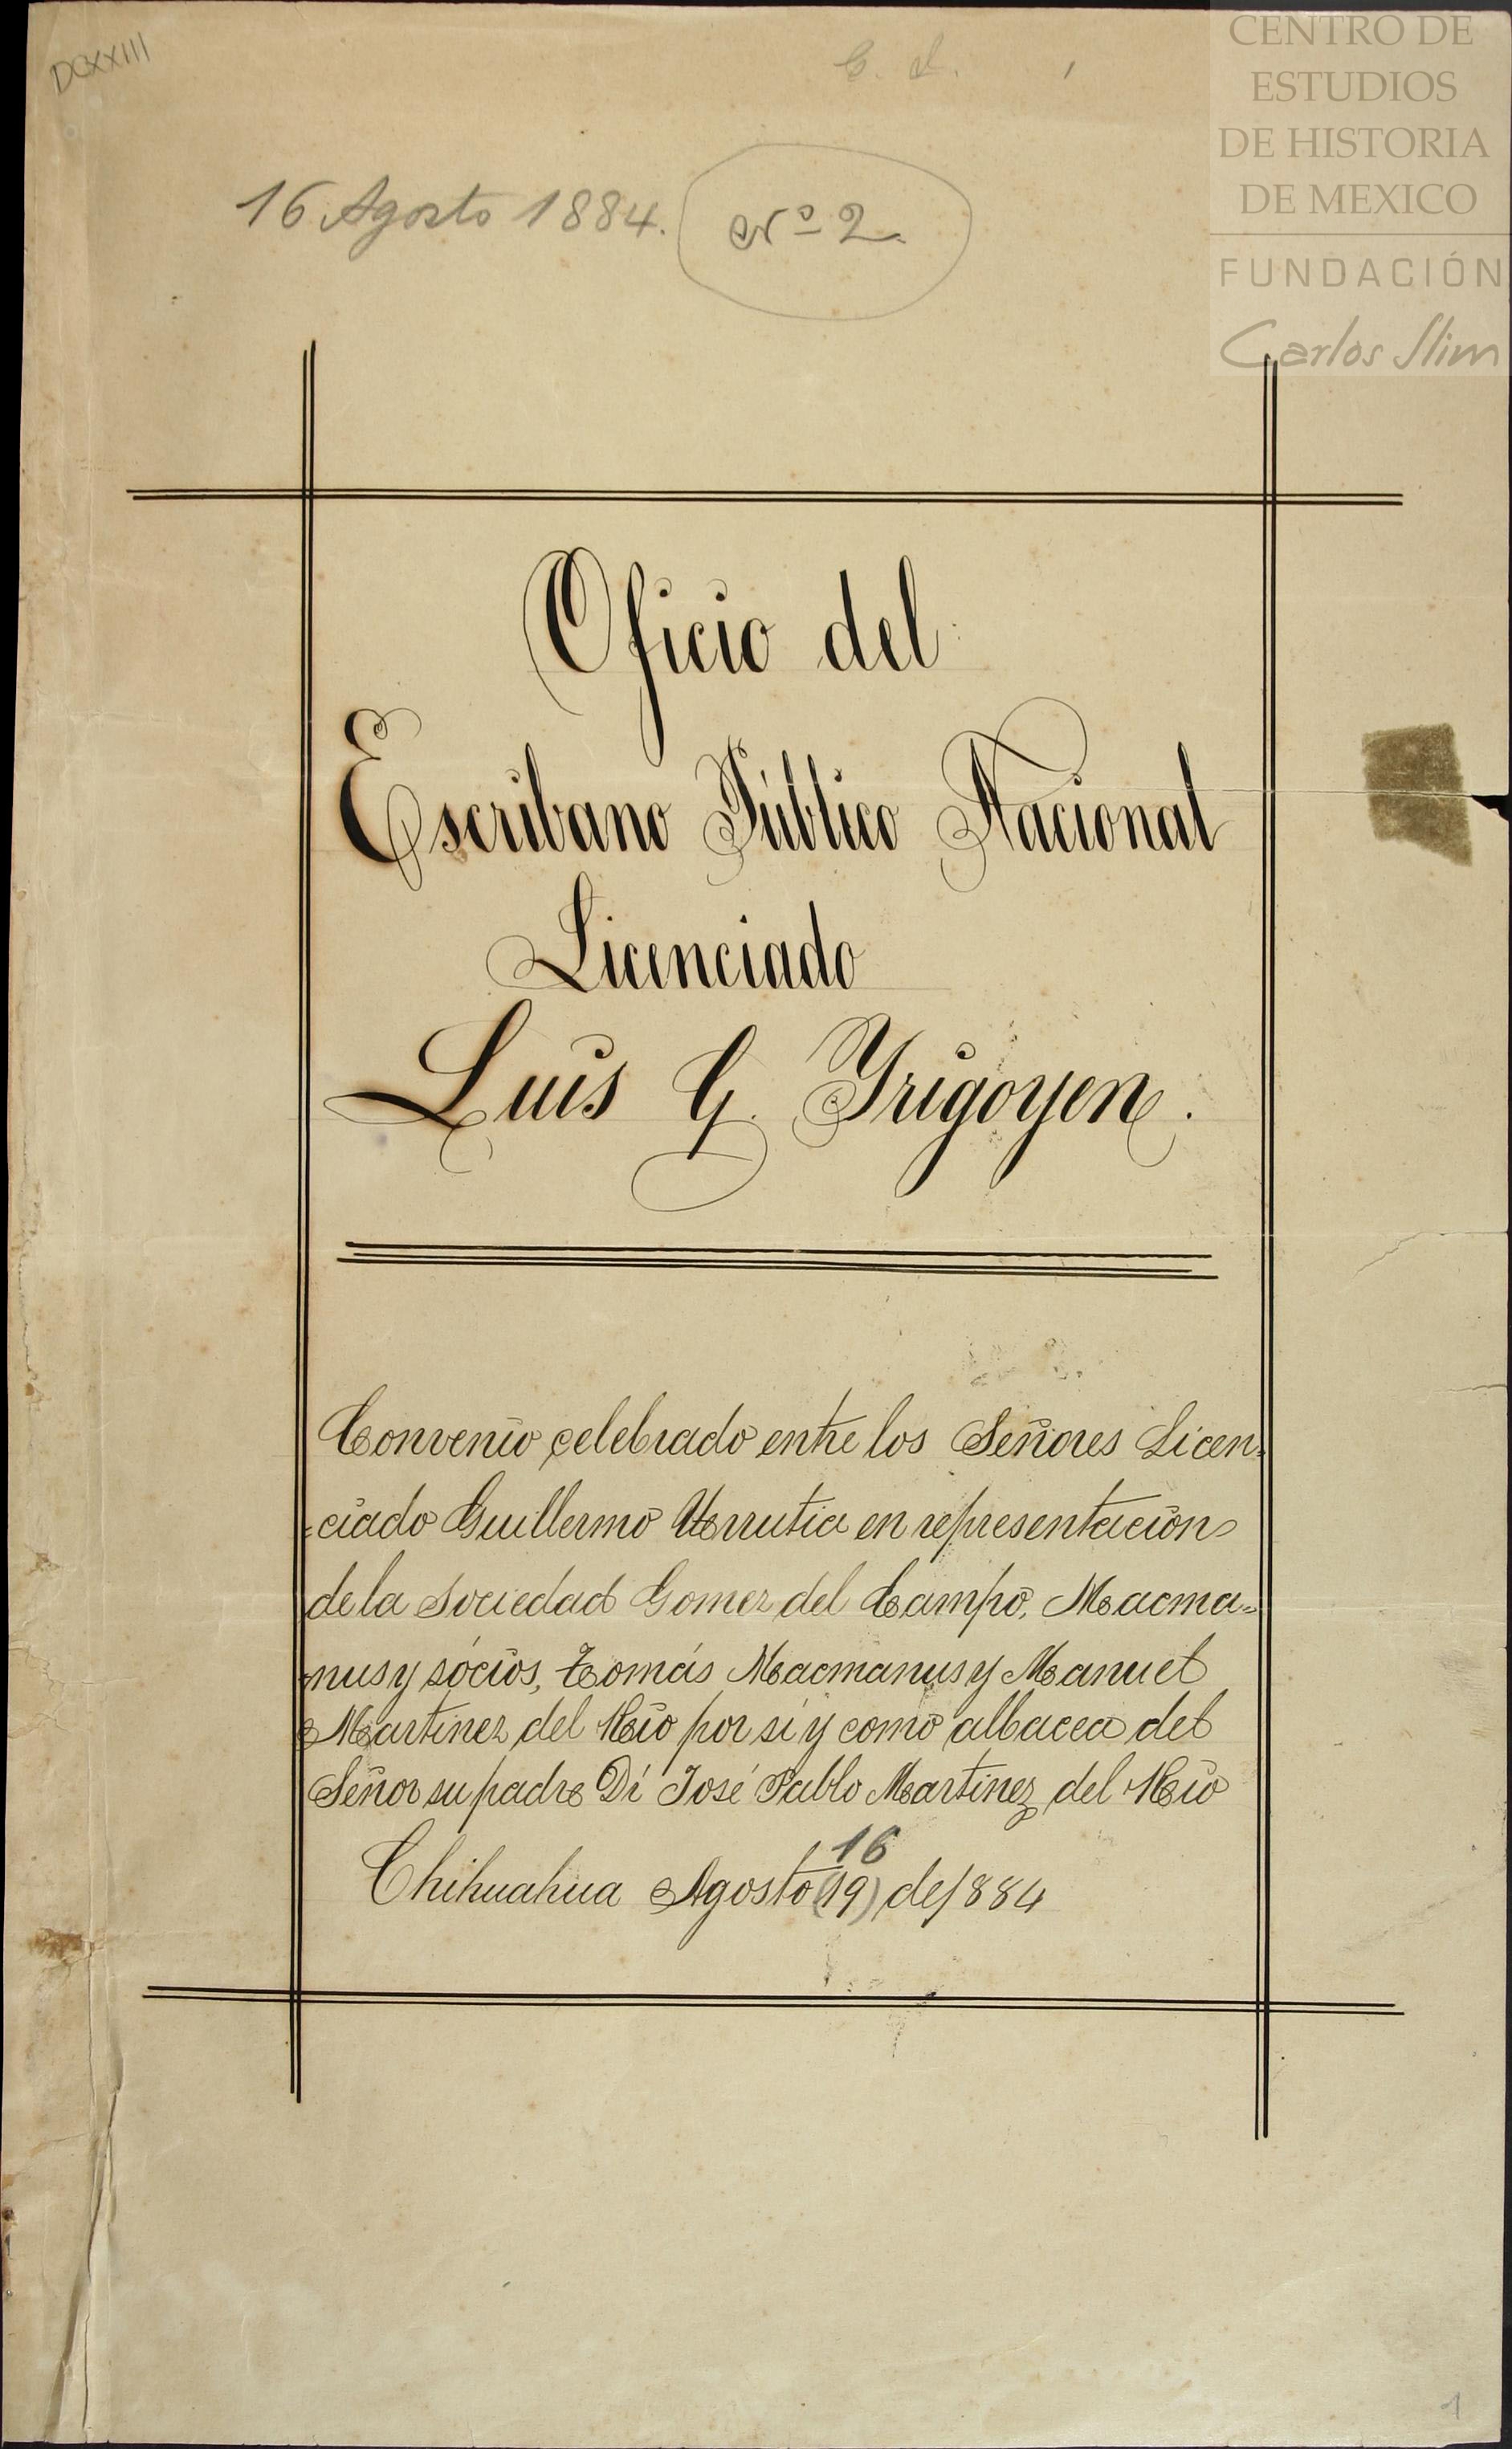 DCXXIII
CENTRO DE
ESTUDIOS
DE HISTORIA
DE MEXICO
FUNDACIÓN
Carlos Slim
16 Agosto 1884. Nº 2.
Oficio del
Escribano Público Nacional
Licenciado
Luis G. Yrigoyen.
Convenio celebrado entre los Señores Licen=
=ciado Guillermo Urrutia en representacion
de la Sociedad Gomez del Campo, Macma=
=nus y sócios, Tomás Macmanus y Manuel
Martinez del Rio por sí y como albacea del
Señor su padre Dⁿ José Pablo Martinez del Rio
16
Chihuahua Agosto (19) de 1884
1